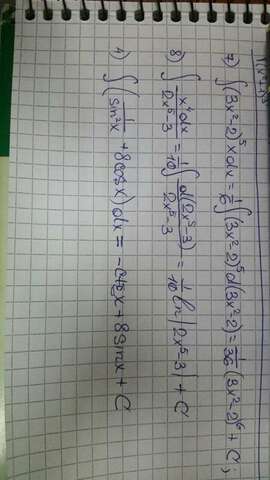 7) ∫(3x²-2)⁵xdx = 1/6 ∫(3x²-2)⁵d(3x²-2) = 1/36 (3x²-2)⁶ + C;
8) ∫ x⁴dx/(2x⁵-3) = 1/10 ∫ d(2x⁵-3)/(2x⁵-3) = 1/10 ln|2x⁵-3| + C
4) ∫(1/sin²x + 8cosx)dx = -ctgx + 8sinx + C